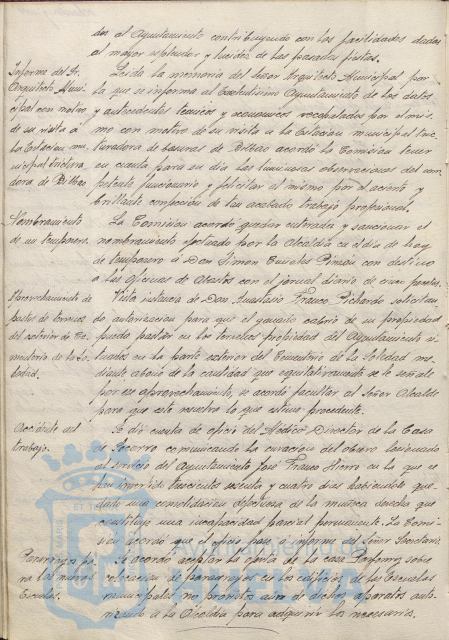 do al Ayuntamiento contribuyendo con las facilidades dadas
al mayor esplendor y lucidez de las pasadas fiestas.
Informe del Sr.
Arquitecto Muni-
cipal con motivo
de su visita a
la Estacion mu-
nicipal Incinera-
dora de Bilbao
Leida la memoria del Señor Arquitecto Municipal por
la que se informa al Excelentisimo Ayuntamiento de los datos
y antecedentes tecnicos y economicos recopilados por el mis-
mo con motivo de su visita a la Estacion municipal Inci-
neradora de basuras de Bilbao acordó la Comision tener
en cuenta para su dia las luminosas observaciones del com-
petente funcionario y felicitar al mismo por el acierto y
brillante confección de tan acabado trabajo profesional.
Nombramiento
de un temporero.
La Comision acordó quedar enterada y sancionar el
nombramiento efectuado por la Alcaldia en el dia de hoy
de temporero a Don Simon Pinzón con destino
a las Oficinas de Abastos con el jornal diario de cinco pesetas.
Aprovechamiento de
pastos de terrenos
del exterior de Ce-
menterio de la So-
ledad.
Vista instancia de Don Anastasio Franco Pichardo solicitan-
do autorizacion para que el ganado cabrio de su propiedad
pueda pastar en los terrenos propiedad del Ayuntamiento si-
tuados en la parte exterior del Cementerio de la Soledad me-
diante abono de la cantidad que equitativamente se le señale
por ese aprovechamiento, se acordó facultar al Señor Alcalde
para que este resuelva lo que estime procedente.
Accidente del
trabajo.
Se dió cuenta de oficio del Medico Director de la Casa
de Socorro comunicando la curación del obrero lesionado
al servicio del Ayuntamiento José Franco Hierro en la que se
han invertido trescientos sesenta y cuatro dias habiendole que-
dado una consolidacion defectuosa de la muñeca derecha que
constituye una incapacidad parcial permanente. La Comi-
sion acordó que el oficio pase a informe del Señor Secretario.
Pararrayos pa-
ra las nuevas
Escuelas.
Se acordó aceptar la oferta de la casa sobre
colocacion de pararrayos en los edificios de las Escuelas
municipales no provistos aun de dichos aparatos auto-
rizando a la Alcaldia para adquirir los necesarios.
Ayuntamiento de